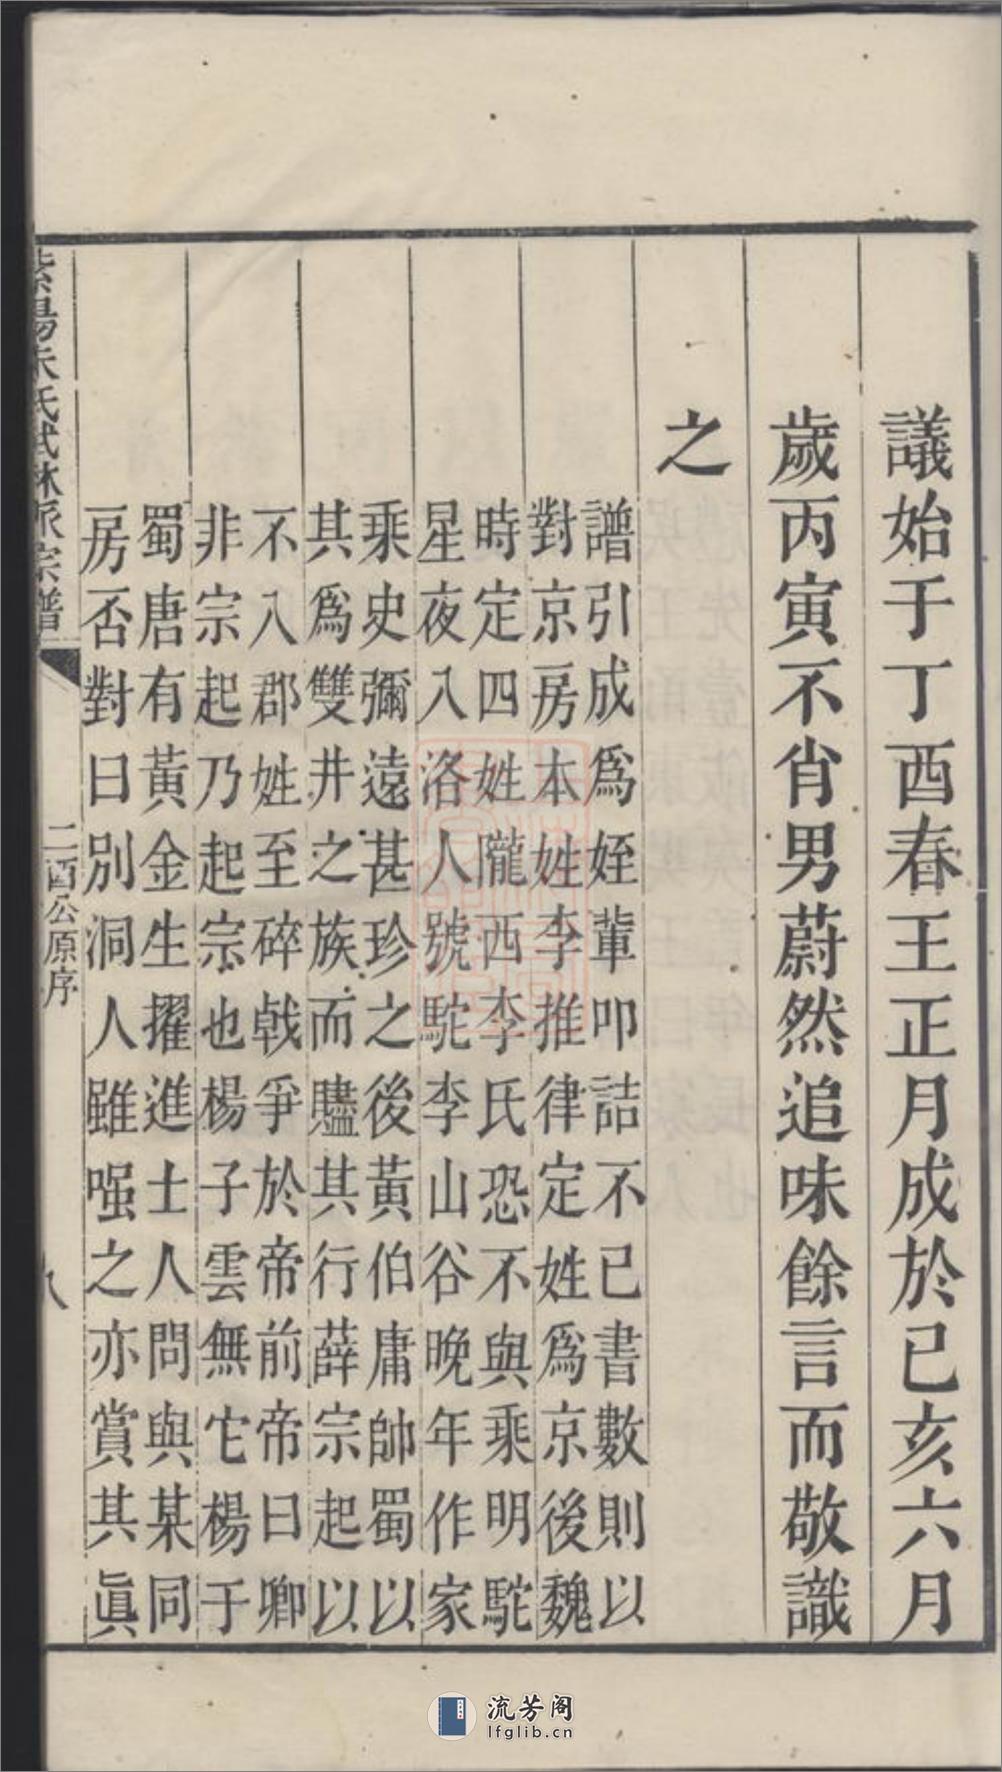 議始于丁酉春王正月成於已亥六月
歲丙寅不肖男蔚然追味餘言而敬識
之
譜引成爲姪輩叩詰不已書數則以
對京房本姓李推律定姓爲京後魏
時定四姓隴西李氏恐不與乘明駝
星夜入洛人號駝李山谷晚年作家
乘史彌遠甚珍之後黃伯庸帥蜀以
其爲雙井之族而贐其行薛宗起以
不入郡姓至碎戟爭於帝前帝曰卿
非宗起乃起宗也楊子雲無它楊于
蜀唐有黃金生擢進士人問與某同
房否對曰別洞人雖嗤之亦賞其眞
紫陽朱氏武林派宗譜
二酉公原序
八
流芳阁
lfglib.cn